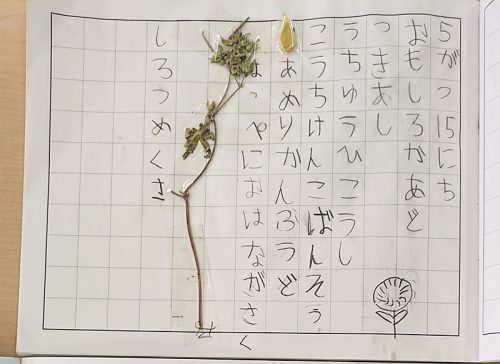 5がつ15にち
おもしろかあど
つきあし
うちゅうひこうし
こうちけんこばんそう
あめりかんふうど
はっやにおはながさく
しろつめくさ